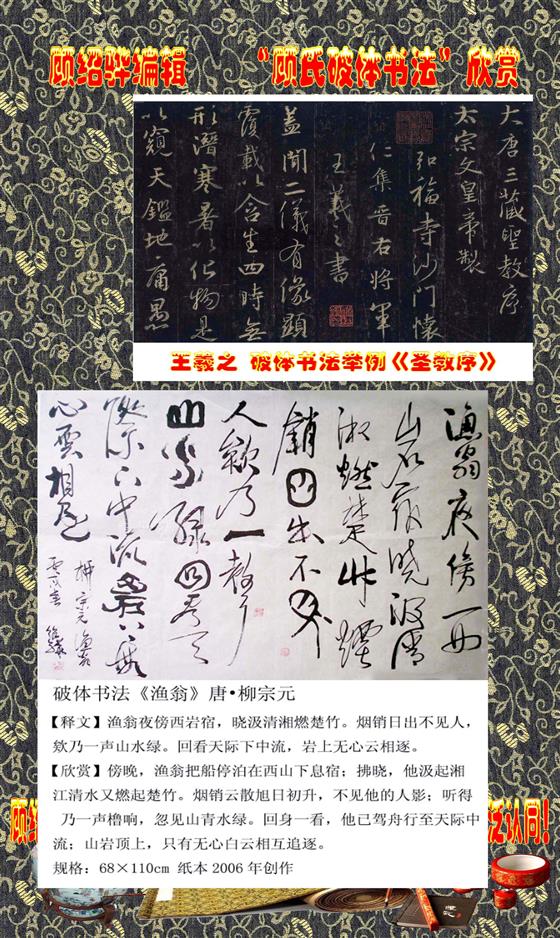 顾绍骅编辑 “顾氏破体书法”欣赏
大唐三藏聖教序
太宗文皇帝製
弘福寺沙門懷
仁集晉右將軍
王羲之書
蓋聞二儀有像顯
覆載以含生四時無
形潛寒暑以化物是
以窺天鑑地庸愚
王羲之 破体书法举例《圣教序》
漁翁夜傍西
岩宿曉汲清
湘燃楚竹煙
銷日出不見
人欸乃一聲
山水綠回看天
際下中流岩上無
心雲相逐
柳宗元漁翁
丙戌春
破体书法《渔翁》唐•柳宗元
【释文】渔翁夜傍西岩宿，晓汲清湘燃楚竹。烟销日出不见人，
欸乃一声山水绿。回看天际下中流，岩上无心云相逐。
【欣赏】傍晚，渔翁把船停泊在西山下息宿；拂晓，他汲起湘
江清水又燃起楚竹。烟销云散旭日初升，不见他的人影；听得
乃一声橹响，忽见山青水绿。回身一看，他已驾舟行至天际中
流；山岩顶上，只有无心白云相互追逐。
规格：68×110cm 纸本 2006 年创作
顾
泛认同!